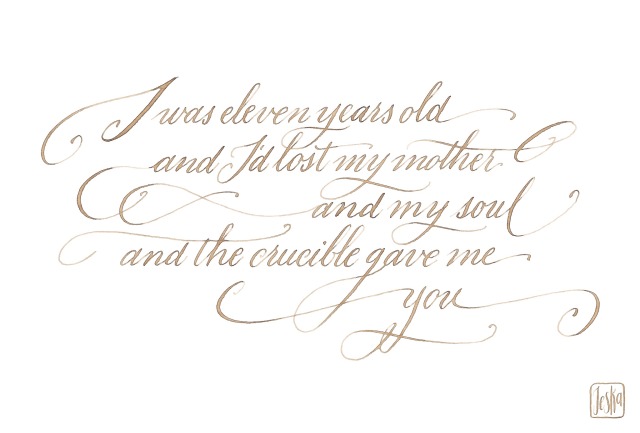 I was eleven years old
and I'd lost my mother
and my soul
and the crucible gave me
you
Jeska